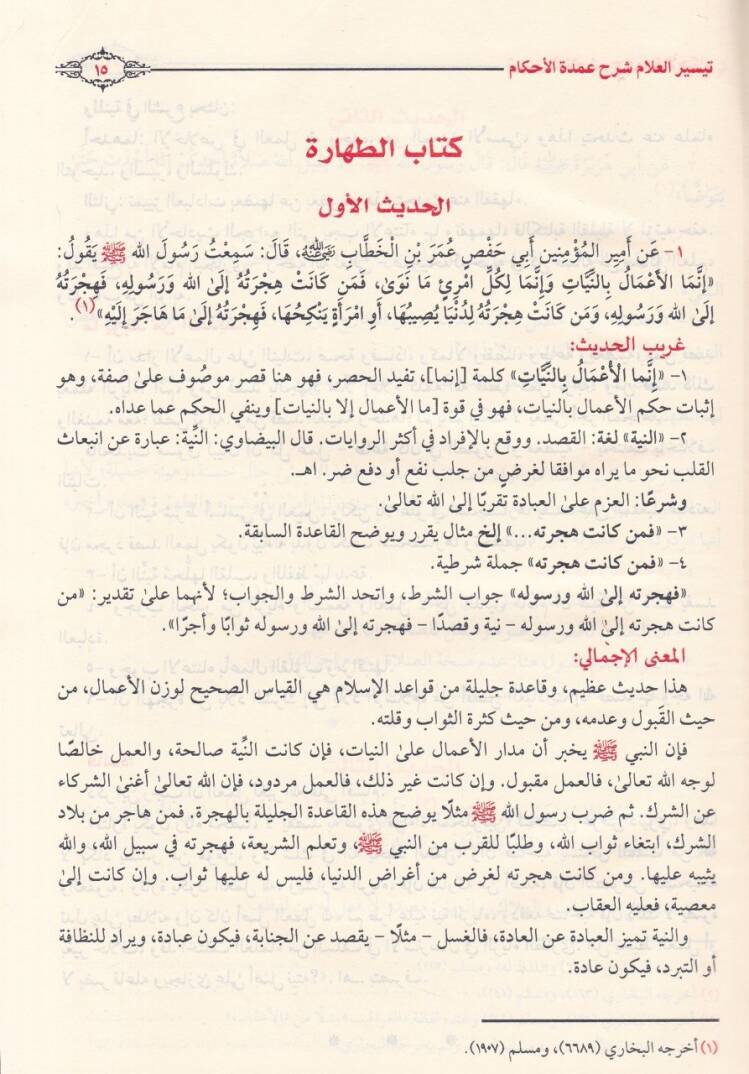 تيسير العلام شرح عمدة الأحكام
١٥
كتاب الطهارة
الحديث الأول
١- عَن أَمِيرِ المُؤْمِنين أَبِي حَفْصٍ عُمَرَ بْنِ الْخَطَّابِ رضي الله عنه، قَالَ: سَمِعْتُ رَسُولَ الله ﷺ يَقُولُ:
«إنَّمَا الأعْمَالُ بِالنِّيَّاتِ وَإنَّمَا لِكُلِّ امْرِئٍ مَا نَوَىٰ، فَمَن كَانَتْ هِجْرَتُهُ إلَىٰ الله وَرَسُولِهِ، فَهِجْرَتُهُ
إلَىٰ الله وَرَسُولِهِ، وَمَن كَانَتْ هِجْرَتُهُ لِدُنْيَا يُصِيبُهَا، أَوِ امْرَأَةٍ يَنْكِحُهَا، فَهِجْرَتُهُ إلَىٰ مَا هَاجَرَ إلَيْهِ»(١).
غريب الحديث:
١- «إنَّما الأَعْمَالُ بِالنِّيَّاتِ» كلمة [إنما]، تفيد الحصر، فهو هنا قصر موصُوف علىٰ صفة، وهو
إثبات حكم الأعمال بالنيات، فهو في قوة [ما الأعمال إلا بالنيات] وينفي الحكم عما عداه.
٢- «النية» لغة: القصد. ووقع بالإفراد في أكثر الروايات. قال البيضاوي: النِّية: عبارة عن انبعاث
القلب نحو ما يراه موافقا لغرضٍ من جلب نفع أو دفع ضر. اهـ.
وشرعًا: العزم علىٰ العبادة تقربًا إلىٰ الله تعالىٰ.
٣- «فمن كانت هجرته...» إلخ مثال يقرر ويوضح القاعدة السابقة.
٤- «فمن كانت هجرته» جملة شرطية.
«فهجرته إلىٰ الله ورسوله» جواب الشرط، واتحد الشرط والجواب؛ لأنهما علىٰ تقدير: «من
كانت هجرته إلىٰ الله ورسوله - نية وقصدًا - فهجرته إلىٰ الله ورسوله ثوابًا وأجرًا».
المعنى الإجمالي:
هذا حديث عظيم، وقاعدة جليلة من قواعد الإسلام هي القياس الصحيح لوزن الأعمال، من
حيث القَبول وعدمه، ومن حيث كثرة الثواب وقلته.
فإن النبي ﷺ يخبر أن مدار الأعمال علىٰ النيات، فإن كانت النِّية صالحة، والعمل خالصًا
لوجه الله تعالىٰ، فالعمل مقبول. وإن كانت غير ذلك، فالعمل مردود، فإن الله تعالىٰ أغنىٰ الشركاء
عن الشرك. ثم ضرب رسول الله ﷺ مثلًا يوضح هذه القاعدة الجليلة بالهجرة. فمن هاجر من بلاد
الشرك، ابتغاء ثواب الله، وطلبًا للقرب من النبي ﷺ، وتعلم الشريعة، فهجرته في سبيل الله، والله
يثيبه عليها. ومن كانت هجرته لغرض من أغراض الدنيا، فليس له عليها ثواب. وإن كانت إلىٰ
معصية، فعليه العقاب.
والنية تميز العبادة عن العادة، فالغسل - مثلًا - يقصد عن الجنابة، فيكون عبادة، ويراد للنظافة
أو التبرد، فيكون عادة.
(١) أخرجه البخاري (٦٦٨٩)، ومسلم (١٩٠٧).